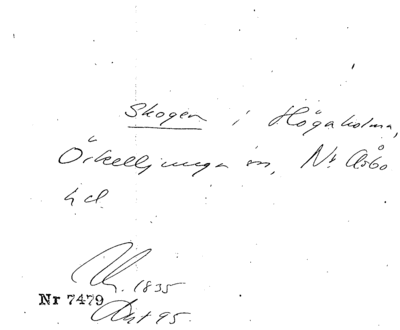 Skogen i Högaholma,
Örkelljunga sn, N. Åsbo
hd.
1835
Nr 7479
Akt 95.